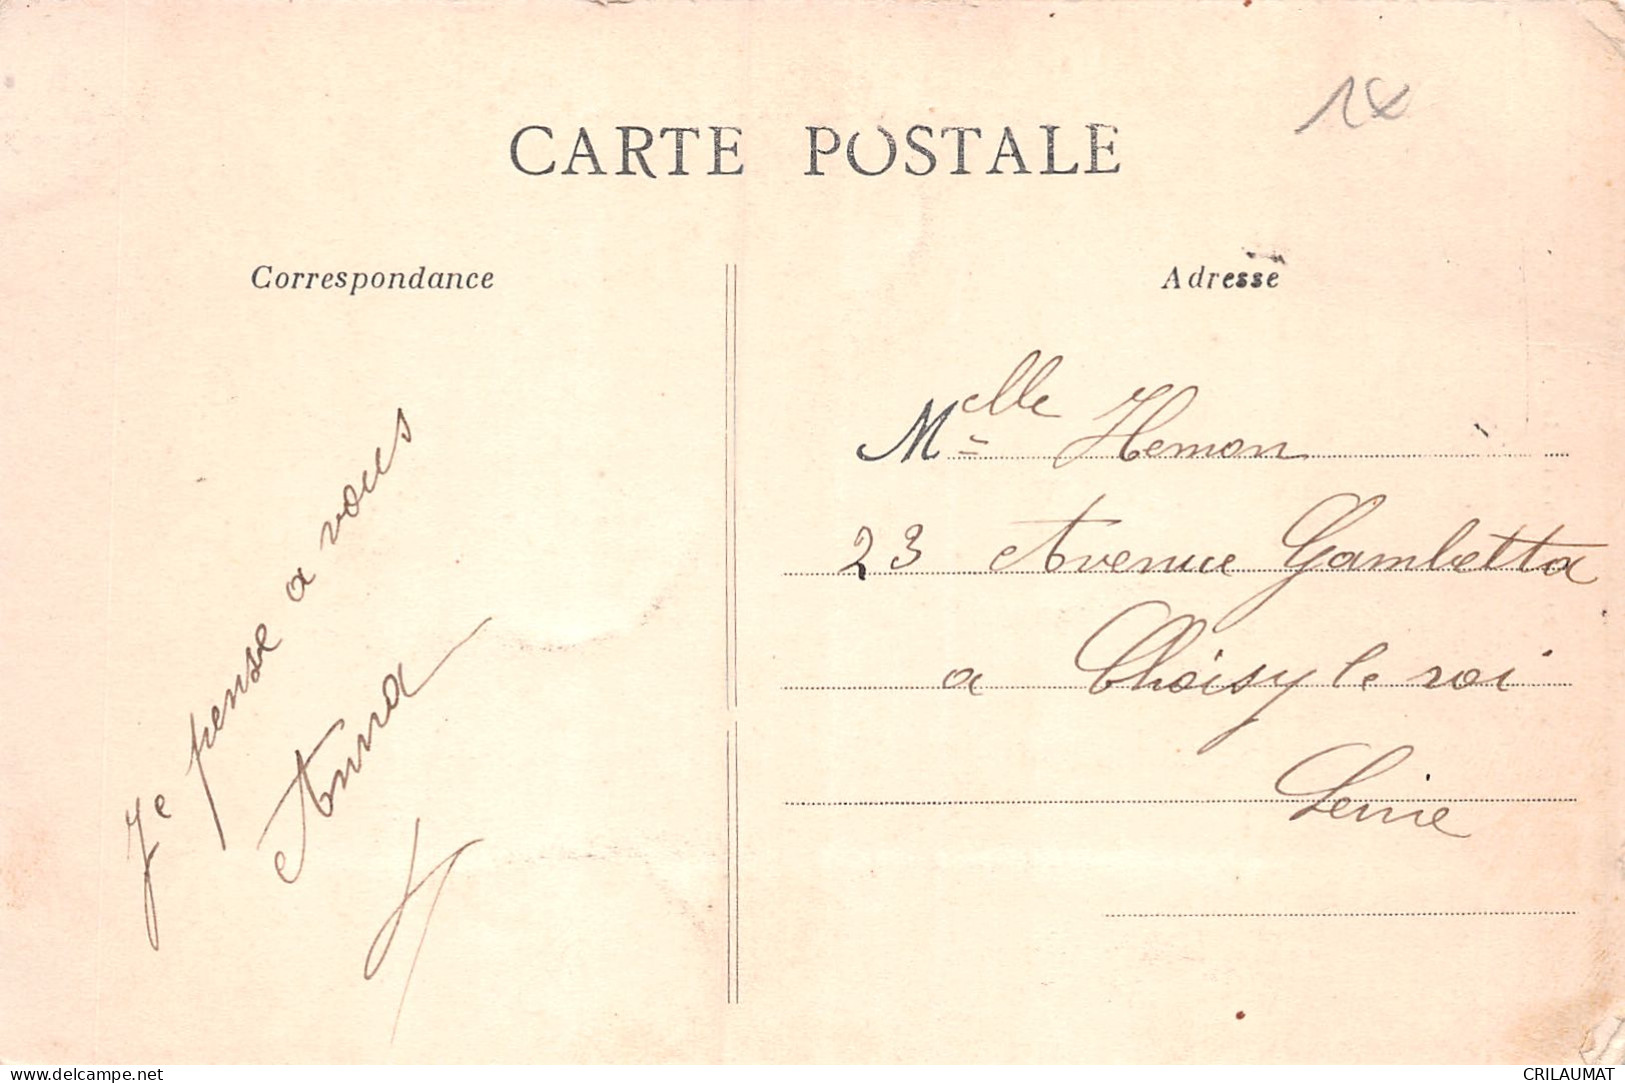 CARTE POSTALE
Correspondance
Adresse
Je pense a vous
Anna
Melle Hemon
23 Avenue Gambetta
a Choisy le roi
Seine
www.delcampe.net
CRILAUMAT